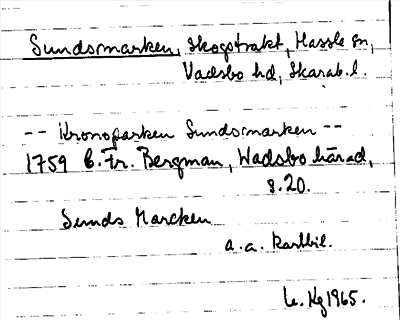 Sundsmarken, Skogstrakt, Hassle sn,
Vadsbo hd, Skarab. l.
-- Kronoparken Sundsmarken --
1759 C. Fr. Bergman, Wadsbo härad,
s. 20.
Sunds Marcken
a. a. kartbil.
Kg 1965.